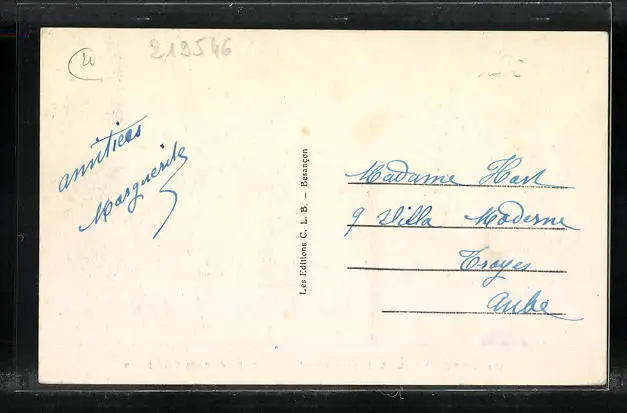 20
219546
amitiés
Marguerite
Les Editions C. L. B. – Besançon
Madame Hart
9 Villa Moderne
Troyes
Aube